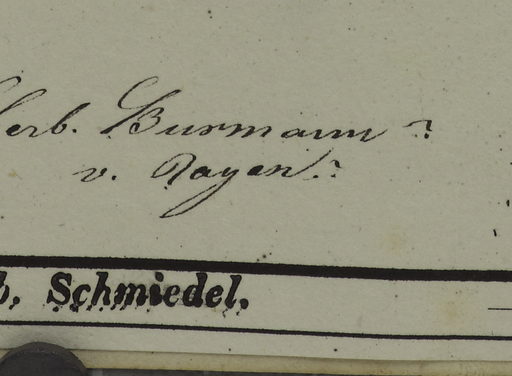 Herb. Burmann?
v. Royen?
b. Schmiedel.